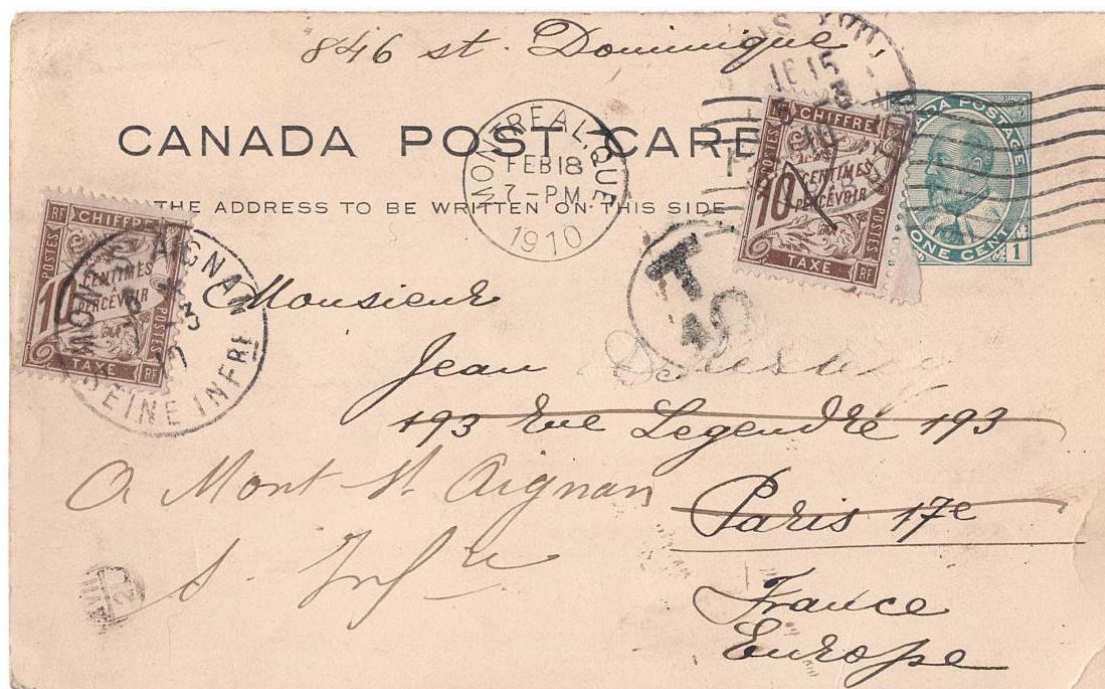 846 st. Dominique
CANADA POST CARD
THE ADDRESS TO BE WRITTEN ON THIS SIDE
MONTREAL, QUE.
FEB 18
7-PM
1910
CANADA POSTAGE
ONE CENT
1
RF CHIFFRE
10 CENTIMES
A PERCEVOIR
POSTES
TAXE RF
RF CHIFFRE
10 CENTIMES
A PERCEVOIR
POSTES
TAXE RF
MONT ST AIGNAN
SEINE INFRE
T
10
Monsieur
Jean
193 Rue Legendre 193
A Mont St Aignan
Paris 17e
S. Infre
France
Europe